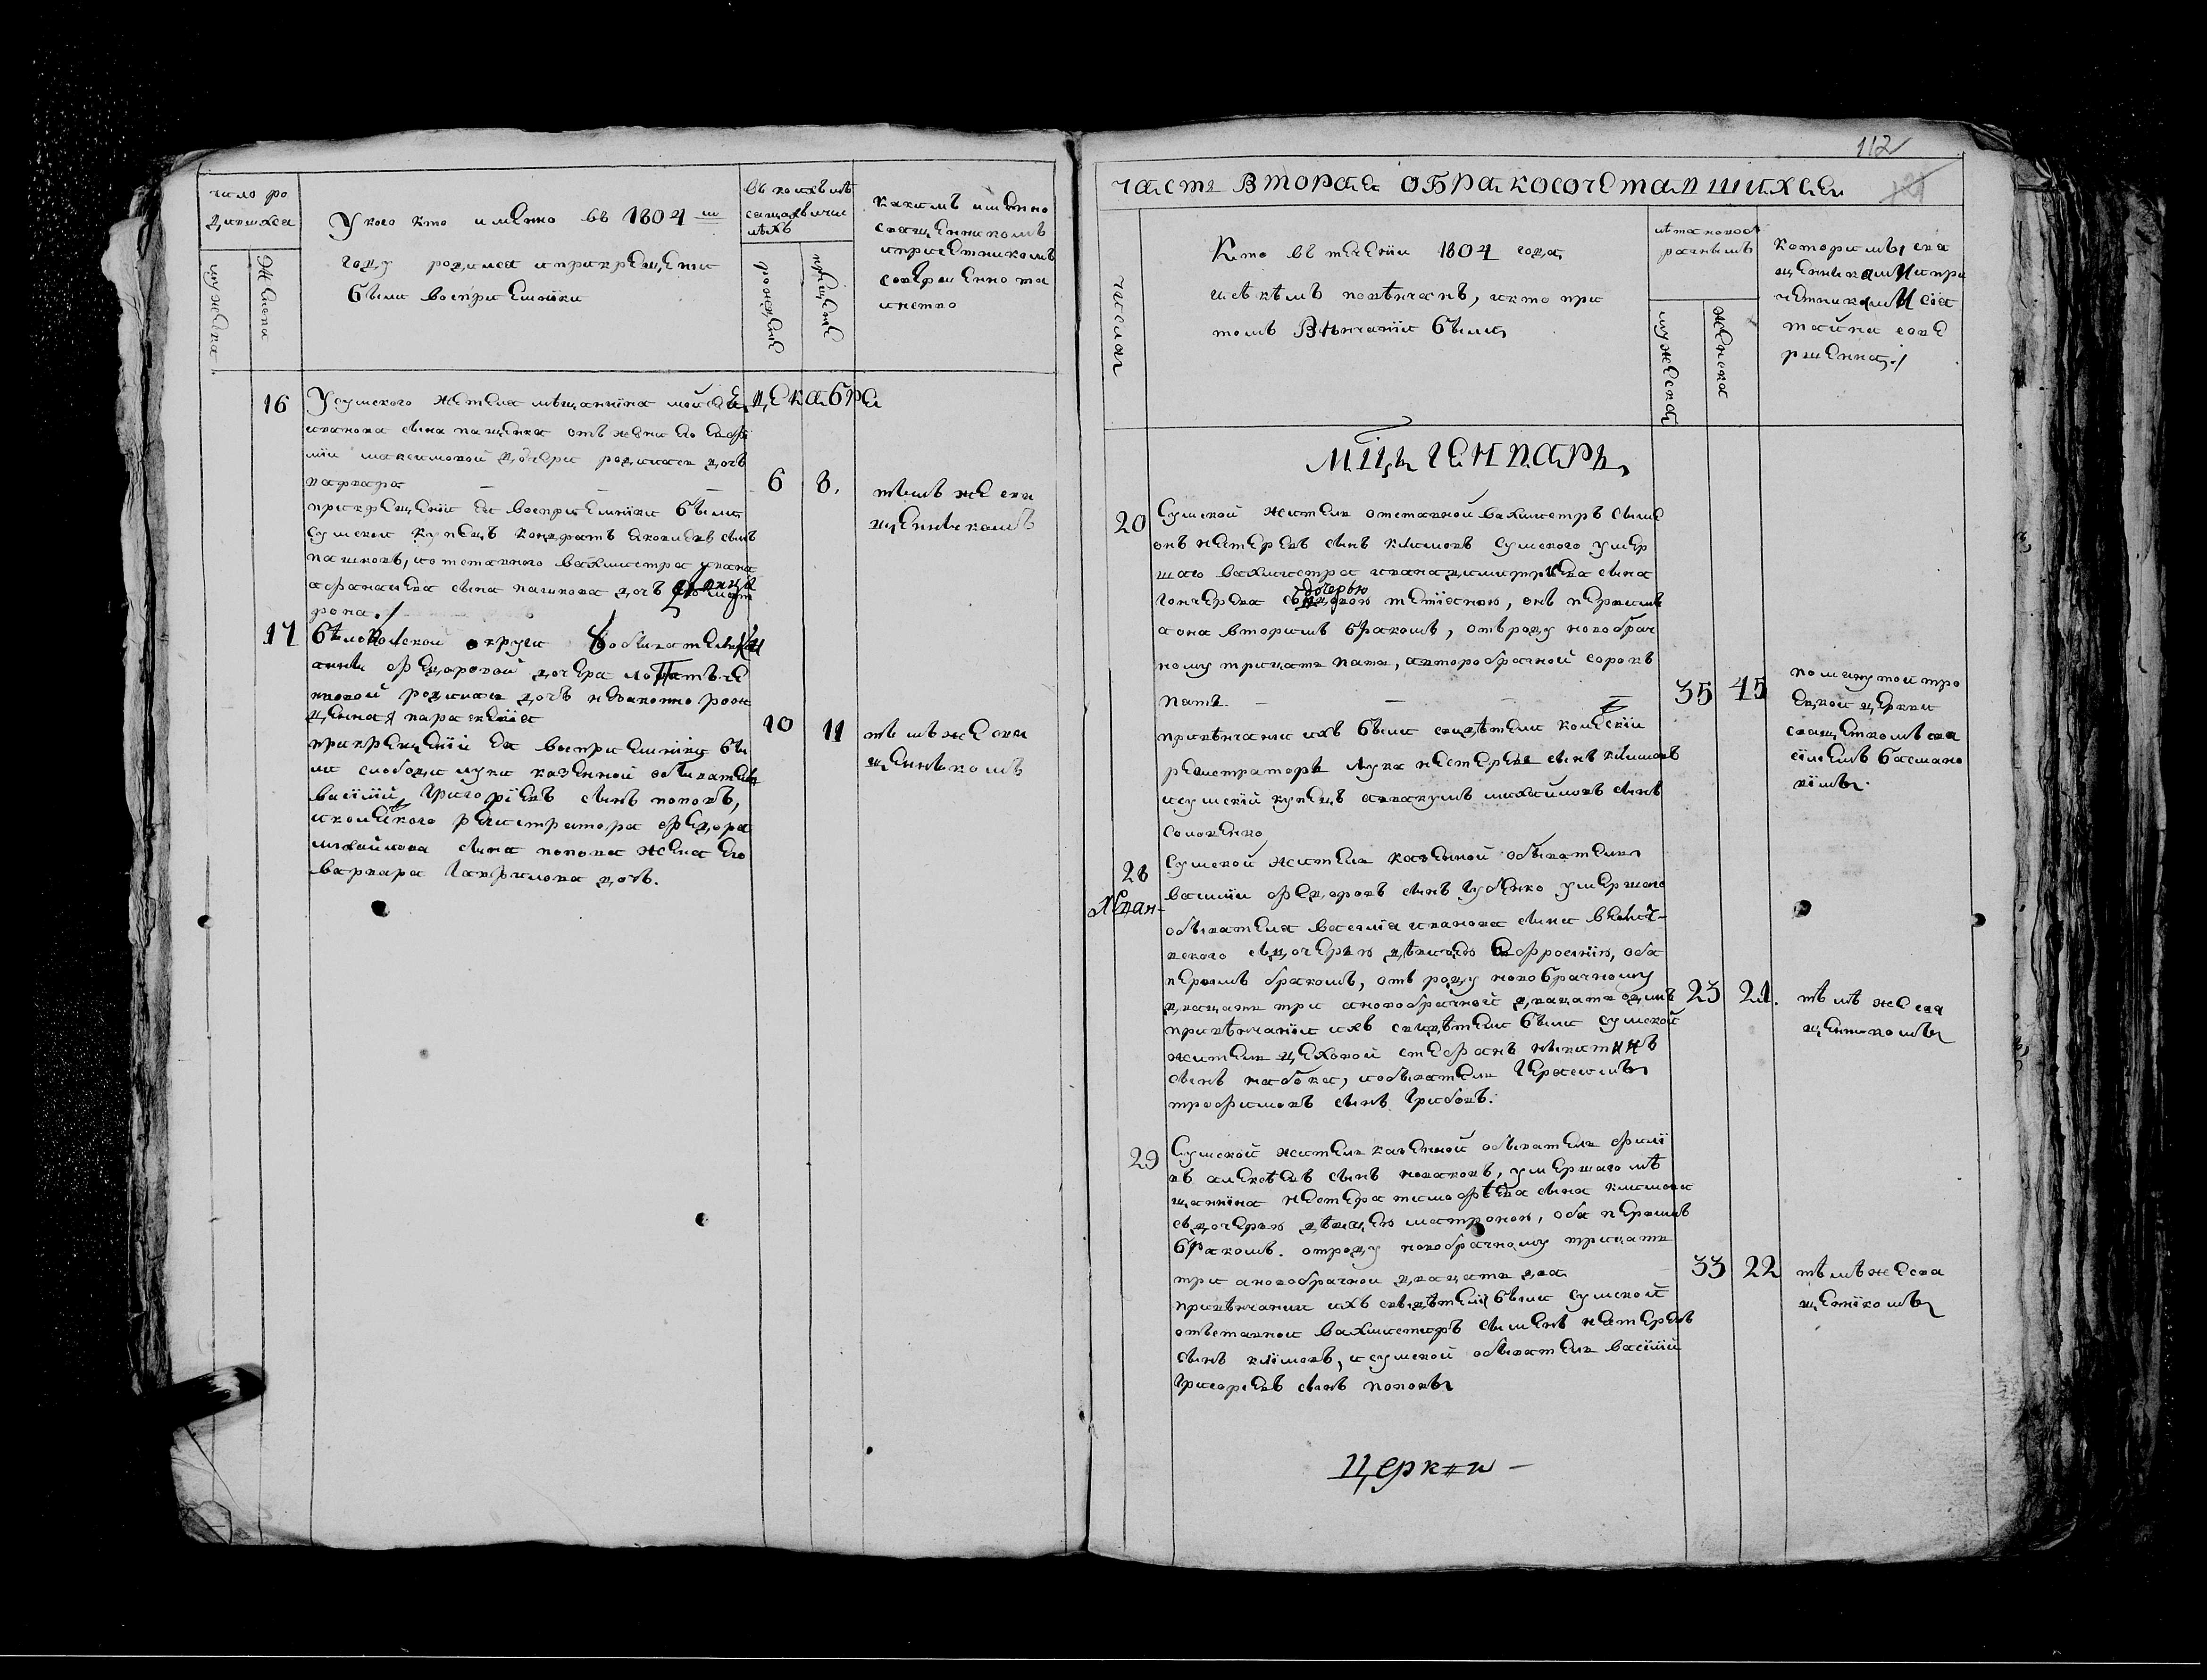 число ро
дившихся
мужеска
Женска
У кого кто имЕнно въ 1804 м
году родился и прикрещЕнии
были восприЕмники
въ коихъ мѣ
сяцахъ и чис
лѣхъ
рождЕние
крещЕние
какимъ имЕнно
священникомъ
и причЕтникомъ
совЕршЕнно та
инство
16
Усумского жителя мѣщанина мойсея
иванова сына пащЕнка отъ жены Его Евфи
мiи максимовой дочЕри родилась дочь
варвара
прикрЕщЕнiи Ея восприЕмники были
сумскои купЕцъ кондратъ яковлЕвъ сынъ
пашковъ, и отставного вахмистра ивана
афанасиЕва сына пашкова дочь
рона.
дЕкабря
6
8.
тѣмъ жЕ свя
щЕнникомъ
17
округи обывателки
анны фЕдоровой дочЕра
родилась дочь нЕзаконно рож
дЕнная параскЕвiя
прикрЕщЕнiи Ея восприЕмники бы
ли слободи луки казЕнной обыватЕль
васiлiй григорiЕвъ сынъ поповъ,
и колЕского рЕгистратора фЕдора
михайлова сына попова жЕна Его
варвара гаврилова дочь.
10
11
тѣмъ жЕ свя
щЕнникомъ
112
часть вторая обракосочЕтавшихся
числа
Кто въ тЕчЕнiи 1804 года
и съ кѣмъ повѣнчанъ, и кто при
томъ вѣнчанiи были
лѣта новоб
рачнымъ
мужЕска
жЕнска
которимъ свя
щЕнникамИ и при
чЕтникамИ сiя
тайна совЕ
ршЕнна.
мцъ гЕнварь
20
Сумской житЕль отставной вахмистръ сымЕ
онъ нЕстЕрЕвъ сынъ климовъ сумского умЕр
шаго вахмистра ивана димитрiЕва сына
гончЕрЕва дочерью онъ пЕрвымъ
а она вторимъ бракомъ, отъ роду новобрач
ному трицать пять, а второбрачной сорокъ
пять
привѣнчании ихъ были свидѣтЕли колЕскiи
рЕгистраторъ лука нЕстЕрЕвъ сынъ климовъ
и сумскiй купЕцъ аввакумъ михаиловъ сынъ
35
45
помянутои тро
Ецкой цЕркви
свящЕнникомъ ва
сiлiЕмъ басмано
вимъ.
28
Сумской житЕль казЕнной обыватЕль
василiи фЕдоровъ сынъ губЕнко умЕршаго
обыватЕля василiя иванова сына
с дочЕрью дѣвицЕю Евфросинiю, оба
пЕрвымъ бракомъ, отъ роду новобрачному
двацать три а новобрачной двацать одинъ
привѣнчанiи ихъ свидѣтЕли были сумской
житЕль цЕховой стЕфанъ никитинъ
сынъ набока, и обыватЕль гЕрасимъ
трофимовъ сынъ грибовъ.
23
21.
тѣмъ жЕ свя
щЕнникомъ
29
Сумской житЕль казЕнной обыватЕль филi
пъ алЕксѣЕвъ сынъ новаковъ, умЕршаго мѣ
щанина нЕстЕра тимофѣЕва сына климова
съ дочЕрью дѣвицЕю матроною, оба пЕрвымъ
бракомъ. отроду новобрачному трицать
три а новобрачнои двацать два
привѣнчании ихъ свидѣтЕли были сумской
отставнои вахмистръ сымЕнъ нЕстЕрЕвъ
сынъ климовъ, и сумской обыватЕль васiлiй
григорiЕвъ сынъ поповъ
33
22
тѣмъ жЕ свя
щЕнникомъ
Церкви